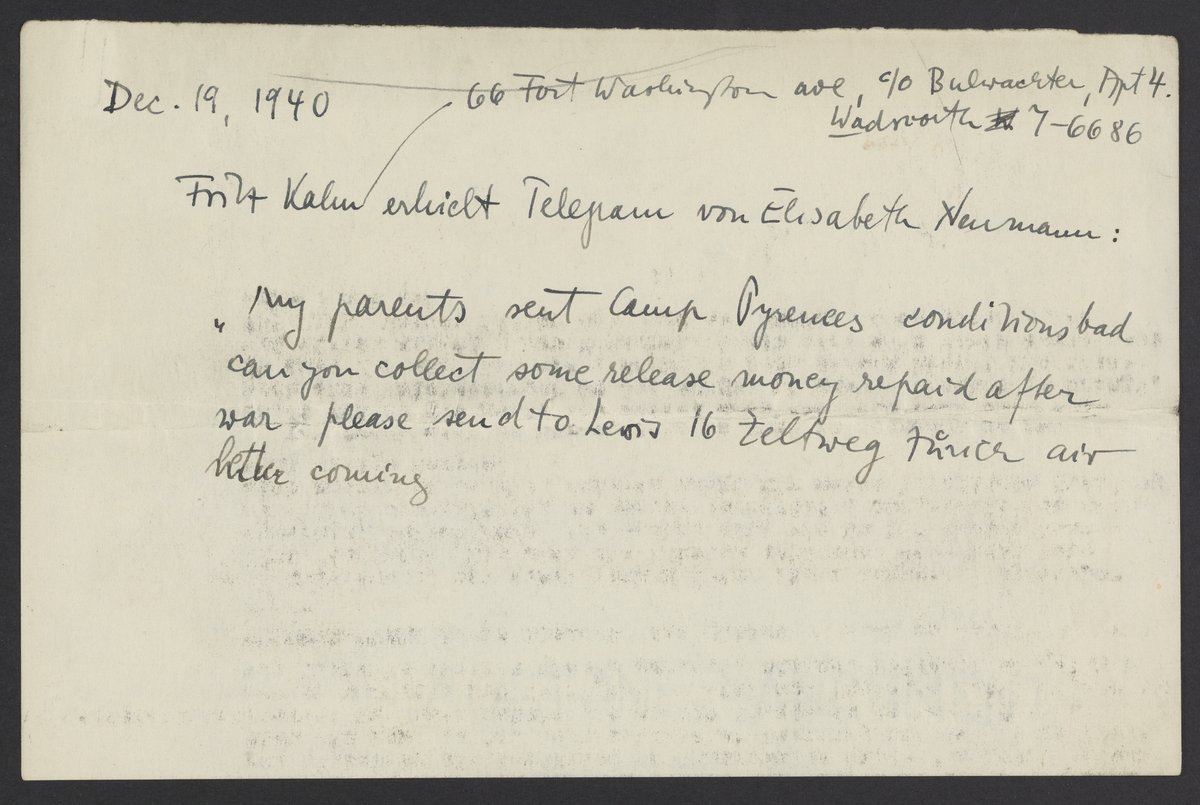 Dec. 19, 1940
66 Fort Washington ave, c/o Bulwachter, Apt 4.
Wadsworth 7-6686
Fritz Kahn erhielt Telegram von Elisabeth Neumann:
„My parents sent Camp Pyrenees conditions bad
can you collect some release money repaid after
war please send to Lewis 16 Zeltweg Zürich air
letter coming